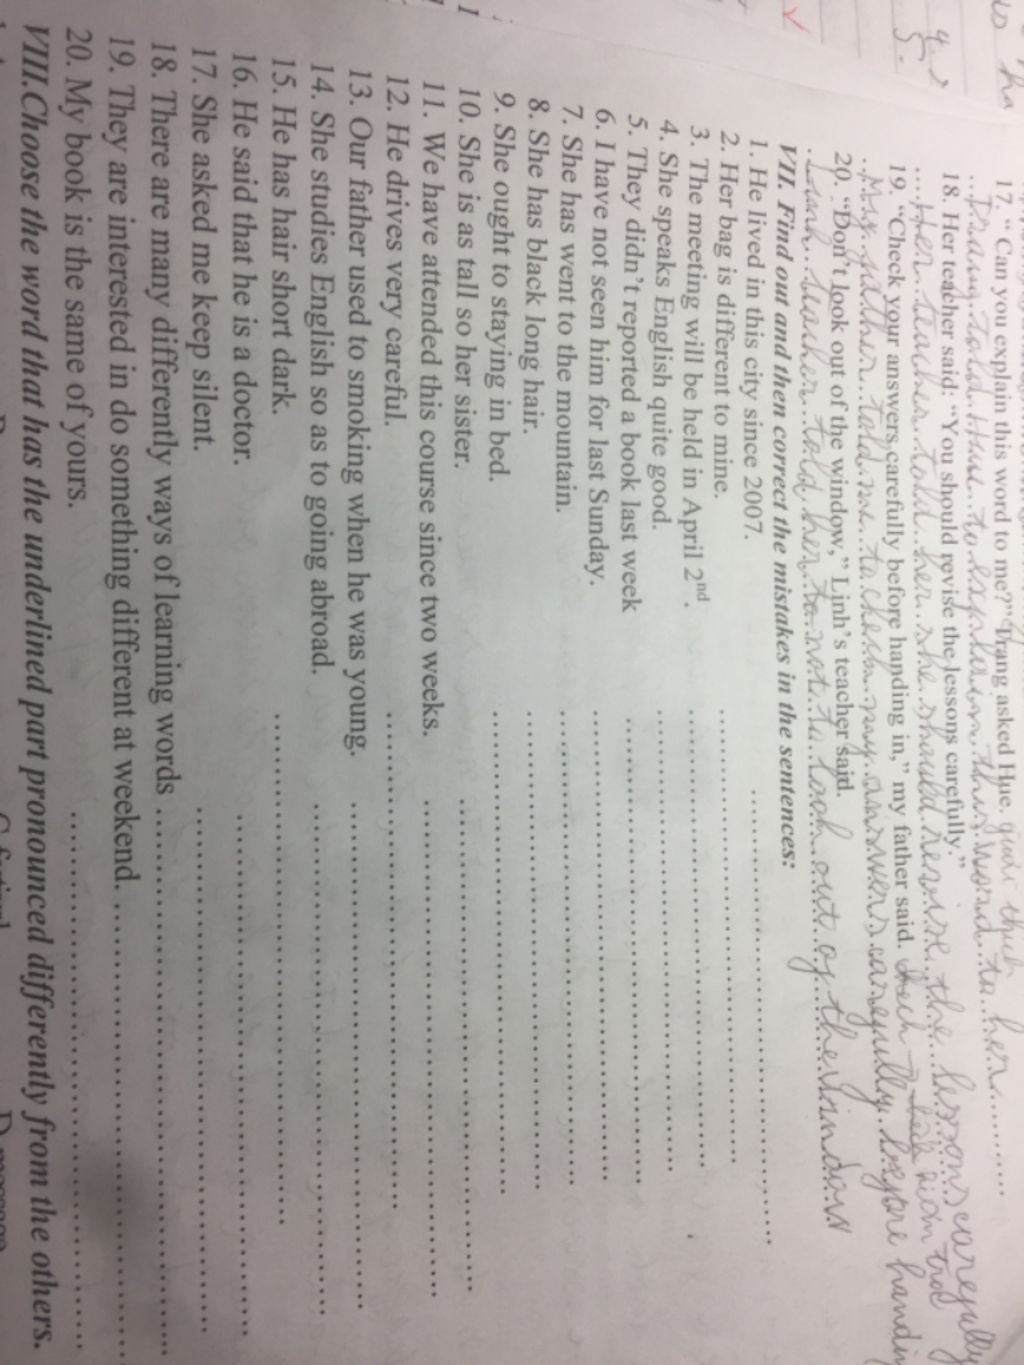 17. “ Can you explain this word to me?” Trang asked Hue.
Trang told Hue to explain this word to her
18. Her teacher said: “You should revise the lessons carefully.”
Her teacher told her she should revise the lessons carefully
19. “Check your answers carefully before handing in,” my father said.
My father told me to check my answers carefully before handin
20. “Don’t look out of the window,” Linh’s teacher said.
Linh teacher told her to not to look out of the windows
VII. Find out and then correct the mistakes in the sentences:
1. He lived in this city since 2007.
2. Her bag is different to mine.
3. The meeting will be held in April 2nd .
4. She speaks English quite good.
5. They didn’t reported a book last week
6. I have not seen him for last Sunday.
7. She has went to the mountain.
8. She has black long hair.
9. She ought to staying in bed.
10. She is as tall so her sister.
11. We have attended this course since two weeks.
12. He drives very careful.
13. Our father used to smoking when he was young.
14. She studies English so as to going abroad.
15. He has hair short dark.
16. He said that he is a doctor.
17. She asked me keep silent.
18. There are many differently ways of learning words
19. They are interested in do something different at weekend.
20. My book is the same of yours.
VIII.Choose the word that has the underlined part pronounced differently from the others.